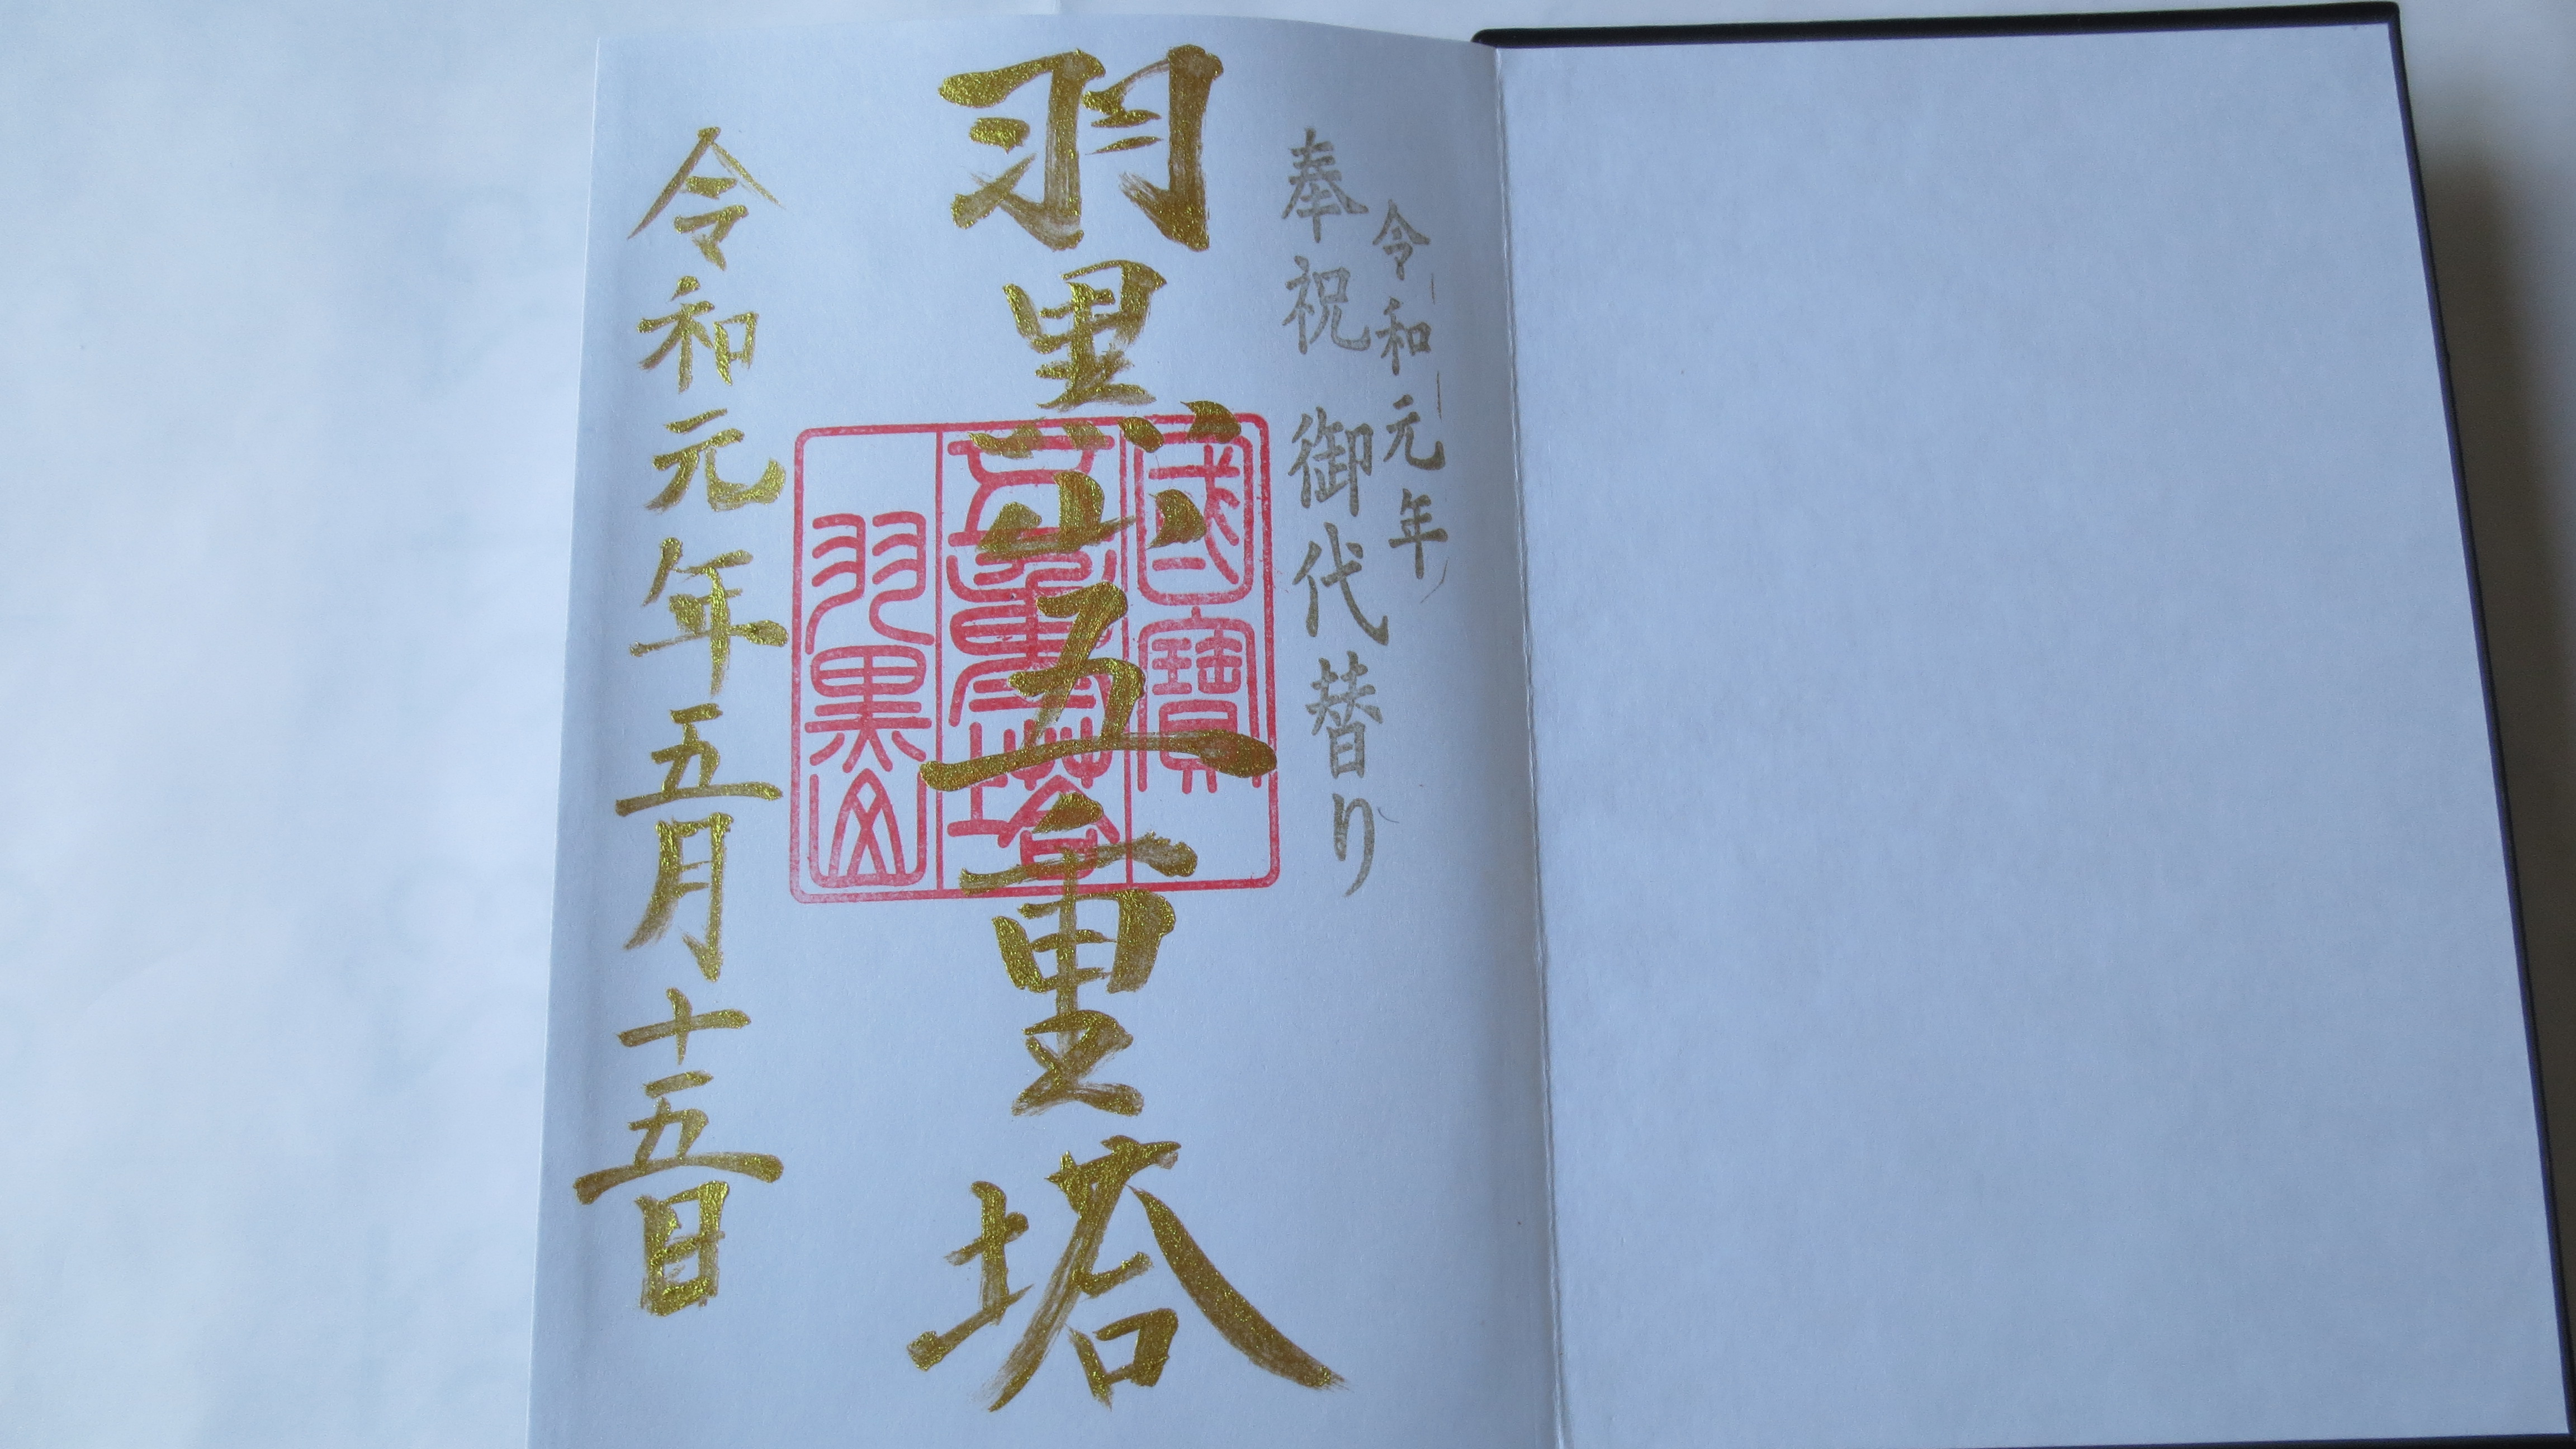 令和元年
奉祝 御代替り
羽黒山五重塔
國寶
五重塔
羽黒山
令和元年五月十五日